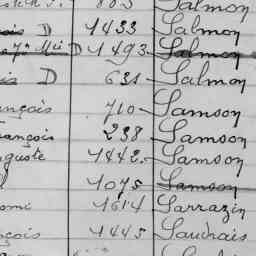 803 Salmon
D 1433 Salmon
D 1493 Salmon
D 631 Salmon
nçois 710 Samson
rançois 238 Samson
guste 1442 Samson
1075 Samson
1614 Sarrazin
çois 1445 Saudrais